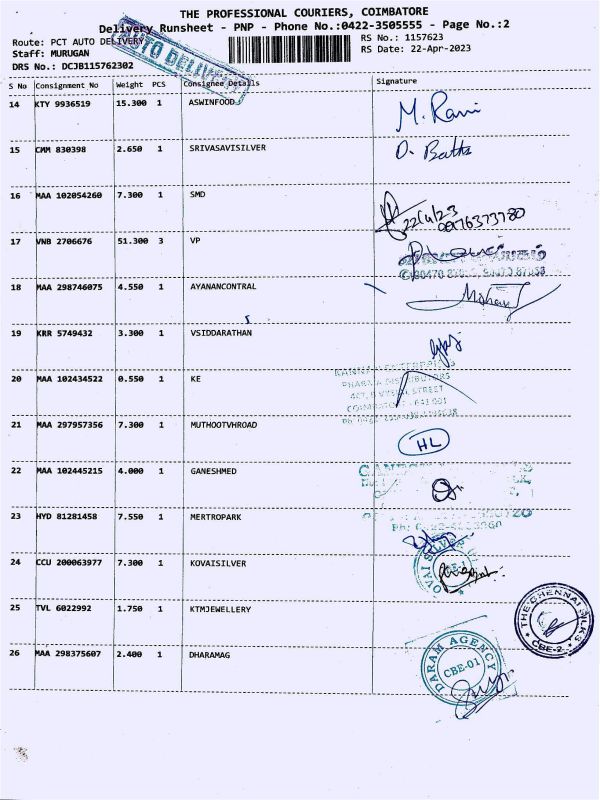 THE PROFESSIONAL COURIERS, COIMBATORE
Delivery Runsheet - PNP - Phone No.:0422-3505555 - Page No.:2
Route: PCT AUTO DELIVERY
RS No.: 1157623
Staff: MURUGAN
RS Date: 22-Apr-2023
DRS No.: DCJB115762302
AUTO DELIVERY
S No Consignment No Weight PCS Consignee Details Signature
14 KTY 9936519 15.300 1 ASWINFOOD M. Rani
15 CMM 830398 2.650 1 SRIVASAVISILVER
16 MAA 102054260 7.300 1 SMD 22/4/23
17 VNB 2706676 51.300 3 VP
18 MAA 298746075 4.550 1 AYANANCONTRAL Mohan
19 KRR 5749432 3.300 1 VSIDDARATHAN
20 MAA 102434522 0.550 1 KE
PHARMA DISTRIBUTORS
STREET
21 MAA 297957356 7.300 1 MUTHOOTVHROAD HL
22 MAA 102445215 4.000 1 GANESHMED
23 HYD 81281458 7.550 1 MERTROPARK
24 CCU 200063977 7.300 1 KOVAISILVER
25 TVL 6022992 1.750 1 KTMJEWELLERY
THE CHENNAI SILKS
CBE-2
26 MAA 298375607 2.400 1 DHARAMAG
DARAM AGENCY
CBE-01